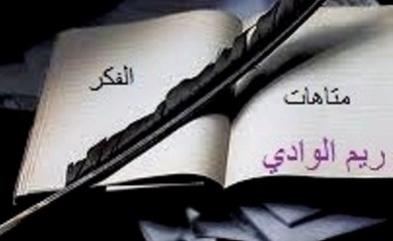 متاهات
الفكر
ريم الوادي